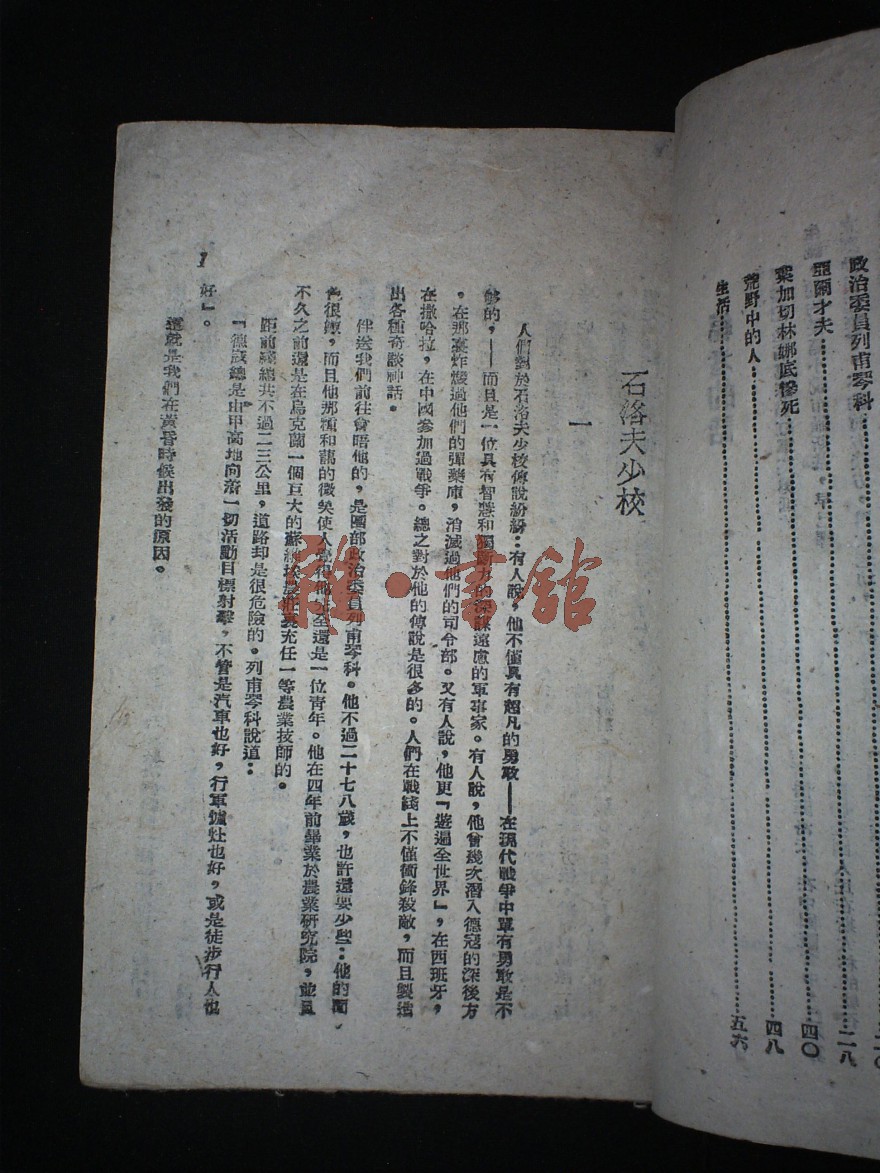 政治委員列甫琴科
亞爾才夫……二八
葉加切林娜底慘死……四〇
荒野中的人……四八
生活……五六
石洛夫少校
一
人們對於石洛夫少校傳說紛紛：有人說，他不僅具有超凡的勇敢——在現代戰爭中單有勇敢是不
够的，——而且是一位具有智慧和獨斷力的深謀遠慮的軍事家。有人說，他曾幾次潛入德寇的深後方
。在那裏炸燬過他們的彈藥庫，消滅過他們的司令部。又有人說，他更『遊遍全世界』，在西班牙，
在撒哈拉，在中國參加過戰爭。總之對於他的傳說是很多的。人們在戰綫上不僅衝鋒殺敵，而且製造
出各種奇談神話。
伴送我們前往會晤他的，是團部政治委員列甫琴科。他不過二十七八歲，也許還要少些：他的面
色很嫩，而且他那種和藹的微笑使人覺得他完全還是一位青年。他在四年前畢業於農業研究院，並且
不久之前還是在烏克蘭一個巨大的蘇維埃農莊裏充任一等農業技師的。
距前綫總共不過二三公里，道路却是很危險的。列甫琴科說道：
『德寇總是由甲高地向着一切活動目標射擊，不管是汽車也好，行軍爐灶也好，或是徒步行人也
好』。
這就是我們在黃昏時候出發的原因。
1
雅·書館